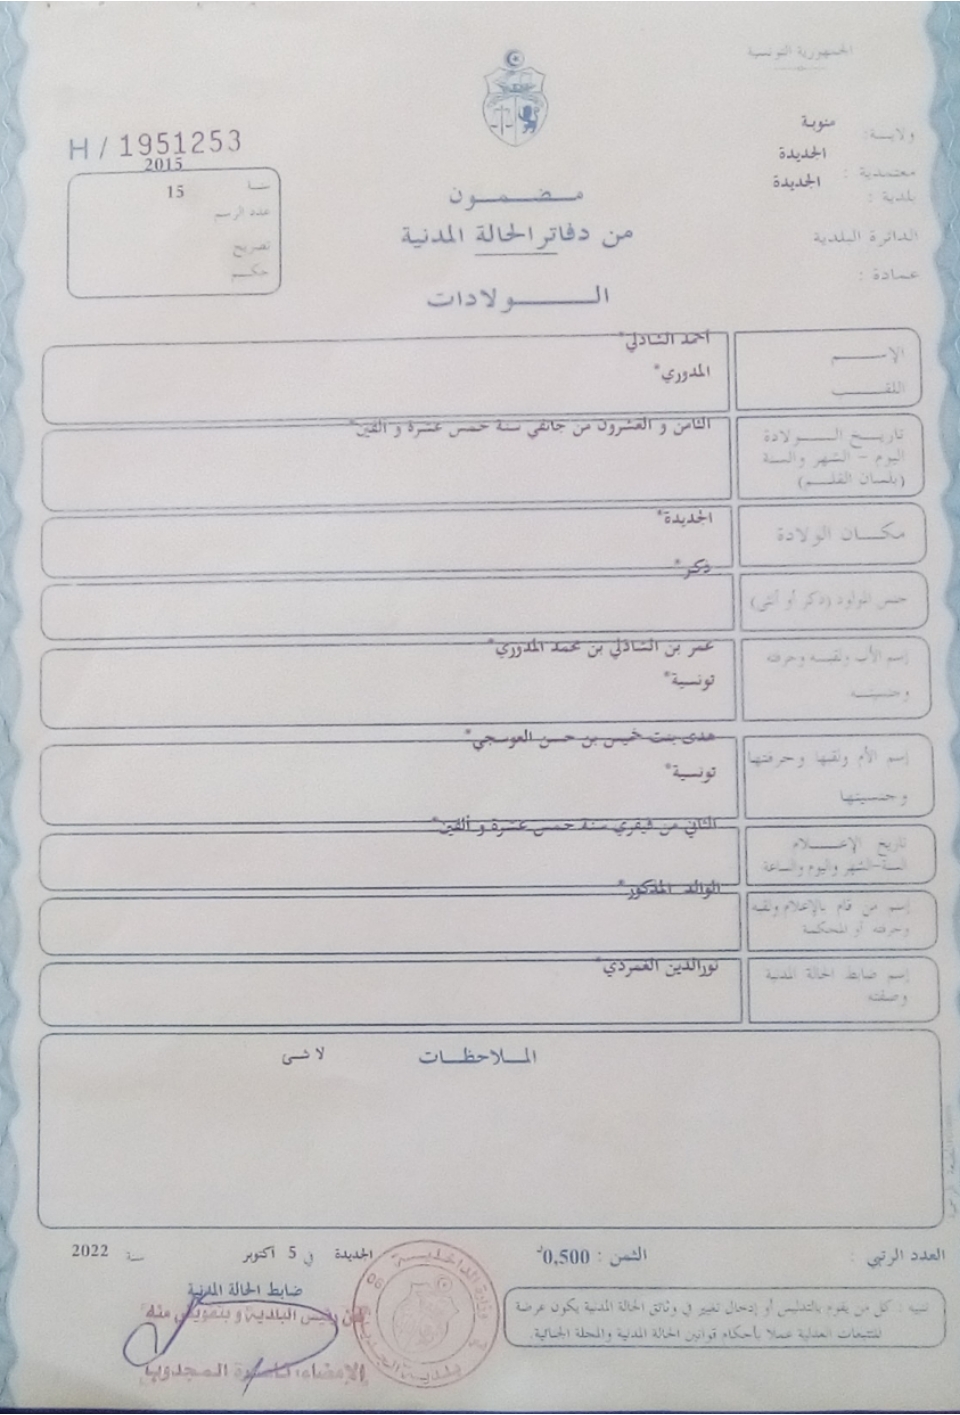 الجمهورية التونسية
ولاية: منوبة
معتمدية: الجديدة
بلدية: الجديدة
الدائرة البلدية
عمادة:
H / 1951253
2015
سنة
15
عدد الرسم
تصريح
حكم
مضمون
من دفاتر الحالة المدنية
الولادات
الاسم أحمد الشاذلي*
اللقب المدوري*
تاريخ الولادة الثامن و العشرون من جانفي سنة خمس عشرة و ألفين*
اليوم - الشهر والسنة
(بلسان القلم)
مكان الولادة الجديدة*
جنس المولود (ذكر أو أنثى) ذكر*
إسم الأب ولقبه وحرفته عمر بن الشاذلي بن محمد المدوري*
وجنسيته تونسية*
إسم الأم ولقبها وحرفتها هدى بنت خميس بن حسن العوسجي*
وجنسيتها تونسية*
تاريخ الإعلام الثاني من فيفري سنة خمس عشرة و ألفين*
السنة-الشهر واليوم والساعة
إسم من قام بالإعلام ولقبه الوالد المذكور*
وحرفته أو المحكمة
إسم ضابط الحالة المدنية نورالدين العمردي*
وصفته
الملاحظات
لا شى
العدد الرتبي :
الثمن : 0,500د
الجديدة في 5 أكتوبر سنة 2022
تنبيه : كل من يقوم بالتدليس أو إدخال تغيير في وثائق الحالة المدنية يكون عرضة
للتتبعات العدلية عملا بأحكام قوانين الحالة المدنية والمجلة الجنائية.
ضابط الحالة المدنية
عن رئيس البلدية و بتفويض منه
الإمضاء: المجدوب
وزارة الداخلية
بلدية الجديدة
06